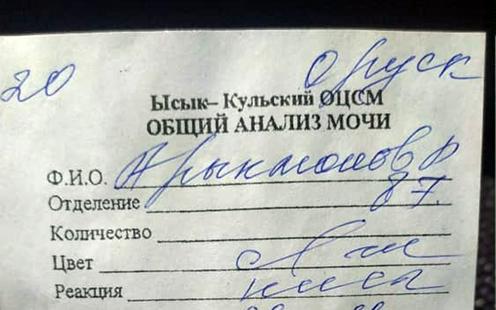 20 оруск
Ысык–Кульский ОЦСМ
ОБЩИЙ АНАЛИЗ МОЧИ
Ф.И.О. Арыкмолов Р
Отделение 87.
Количество
Цвет
Реакция